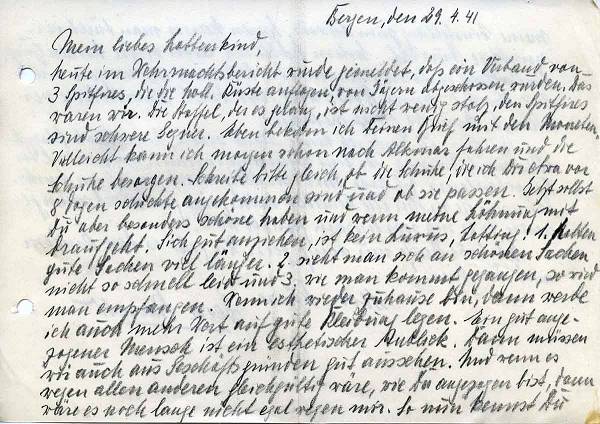 Bergen, den 29.4.41
Mein liebes
heute im Wehrmachtsbericht wurde gemeldet, daß ein Verband von
3 Spitfires, die die holl. Küste anflogen von Jägern abgeschossen wurden. Das
waren wir. Die Staffel, der es gelang, ist nicht wenig stolz, den Spitfires
sind schwere Gegner. Eben bekam ich Deinen Brief mit den Moneten.
Vielleicht kann ich morgen schon nach Alkmar fahren und die
Schuhe besorgen. Schreibe bitte gleich, ob die Schuhe, die ich Dir etwa vor
8 Tagen schickte angekommen sind und ob sie passen. Jetzt sollst
Du aber besonders schöne haben und wenn meine Löhnung mit
draufgeht. Sich gut anziehen, ist kein Luxus, 1. halten
gute Sachen viel länger. 2. sieht man sich an schönen Sachen
nicht so schnell leid und 3. wie man kommt gegangen, so wird
man empfangen. Wenn ich wieder zuhause bin, dann werde
ich auch mehr Wert auf gute Kleidung legen. Ein gut ange-
zogener Mensch ist ein esthetischer Anblick. Dann müssen
wir auch aus Geschäftsgründen gut aussehen. Und wenn es
wegen allen anderen gleichgültig wäre, wie Du angezogen bist, dann
wäre es noch lange nicht egal wegen mir. So nun kennst Du